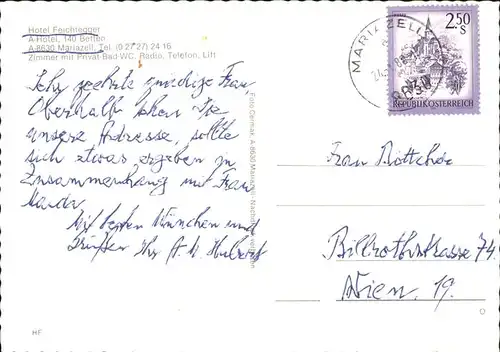 Hotel Feichtegger
A-Hotel, 140 Betten
A-8630 Mariazell, Tel. (0 27 27) 24 16
Zimmer mit Privat-Bad-WC, Radio, Telefon, Lift
Sehr geehrte gnädige Frau
haben Sie
unsere Adresse, sollte
sich etwas ergeben in
Zusammenhang mit Frau
Mit besten Wünschen und
Grüßen Ihr
Foto Germak, A-8630 Mariazell
MARIAZELL
2.50
S
REPUBLIK ÖSTERREICH
Frau Böttcher
Billrothstrasse 74
Wien. 19.
HF